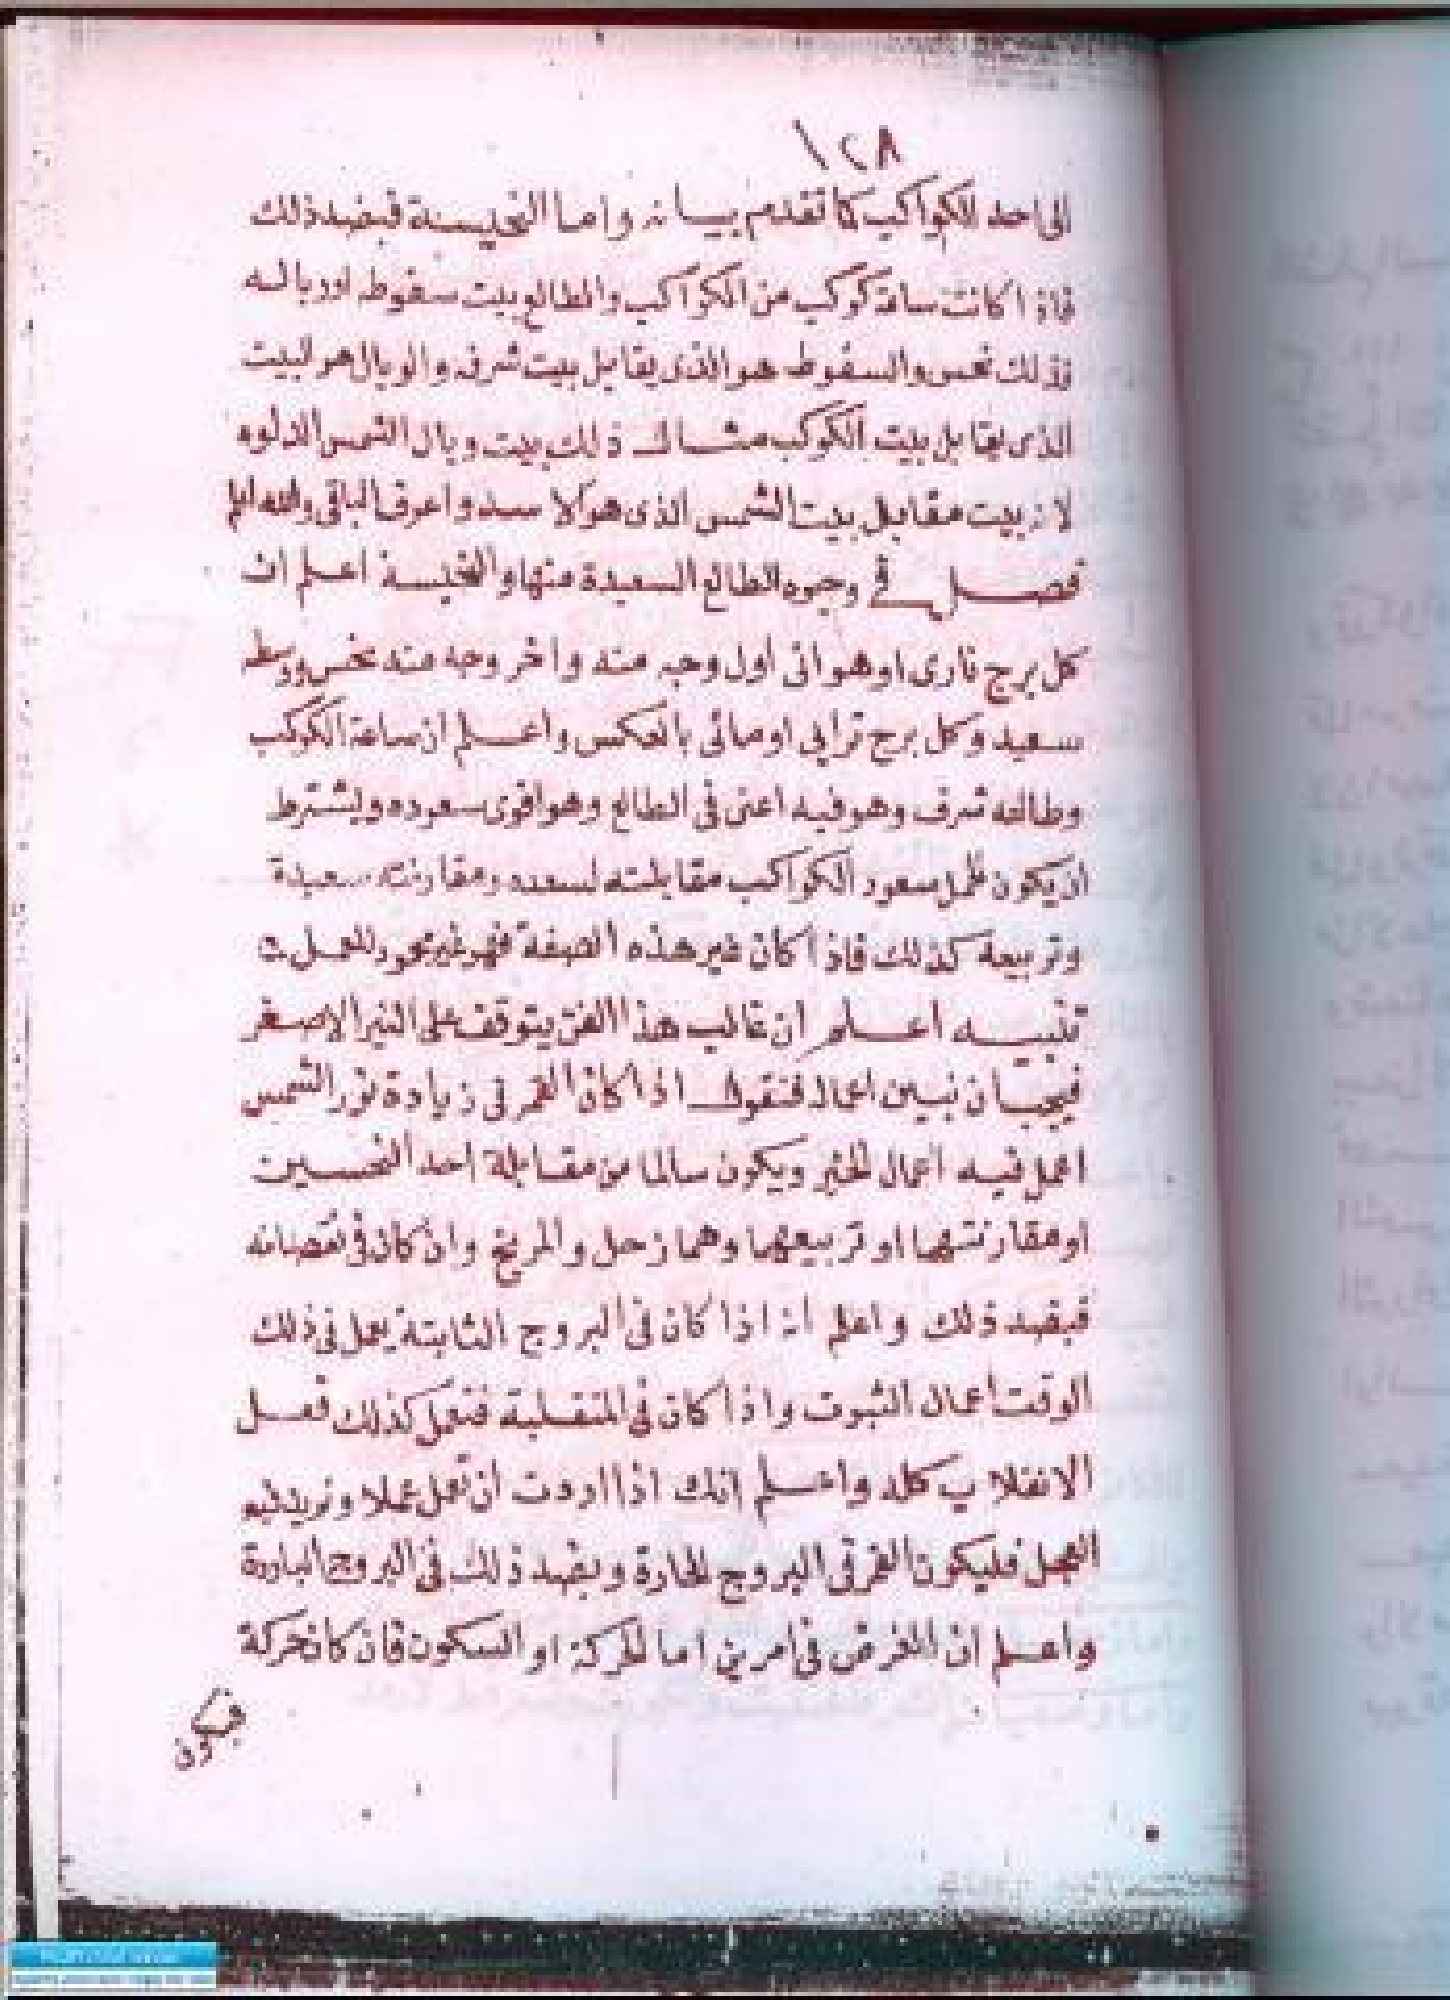 ١٢٨
الى احد الكواكب كما تقدم بيانه واما النحيسة فبضد ذلك
فاذا كانت ساعة كوكب من الكواكب والطالع بيت سقوطه او وباله
فذلك نحس والسقوط هو الذى يقابل بيت شرفه والوبال هو البيت
الذى يقابل بيت الكوكب مثال ذلك بيت وبال الشمس الدلو
لانه بيت مقابل بيت الشمس الذى هو الاسد واعرف الباقى والله اعلم
فصل فى وجوه الطالع السعيدة منها والنحيسة اعلم ان
كل برج نارى او هوائى اول وجه منه واخر وجه منه نحس ووسطه
سعيد وكل برج ترابى او مائى بالعكس واعلم ان ساعة الكوكب
وطالعه شرفه وهو فيه اعنى فى الطالع وهو اقوى سعوده ويشترط
ان يكون سعود الكواكب مقابلته لسعده ومقارنته سعيدة
وتربيعه كذلك فاذا كان غير هذه الصفة فهو غير محمود للعمل
تنبيه اعلم ان غالب هذا الفن يتوقف على النير الاصغر
فيجب ان نبين اعماله فنقول اذا كان القمر فى زيادة نور الشمس
اعمل فيه اعمال الخير ويكون سالما من مقابلة احد النحسين
او مقارنتهما او تربيعهما وهما زحل والمريخ وان كان فى نقصانه
فبضد ذلك واعلم انه اذا كان فى البروج الثابتة يعمل فى ذلك
الوقت اعمال الثبوت واذا كان فى المنقلبة فتعمل كذلك فعل
الانقلاب كله واعلم انك اذا اردت ان تعمل عملا وتريد فيه
العجل فليكون القمر فى البروج الحارة وبضد ذلك فى البروج الباردة
واعلم ان الغرض فى امرين اما الحركة او السكون فان كان حركة
فيكون